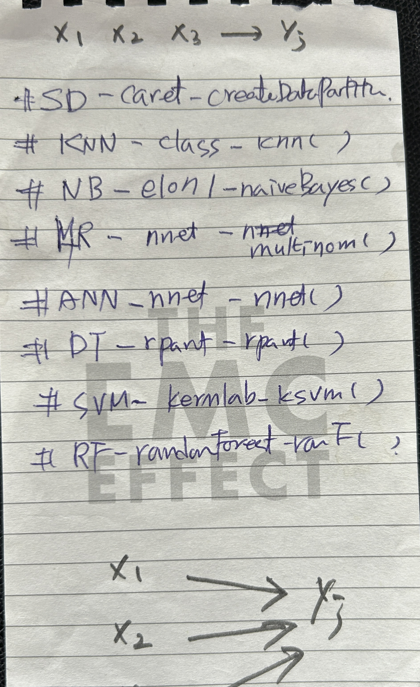 X1 X2 X3 → Yj
#SD-Caret-CreateDataPartitn.
# KNN - class - knn( )
# NB - e1071 - naiveBayes( )
# MR - nnet - nnet
multinom( )
THE
#ANN - nnet - nnet( )
# DT - rpart - rpart( )
EMC
# SVM - kernlab - ksvm( )
# RF - randonforest - ranF( )
EFFECT
X1
Yj
X2